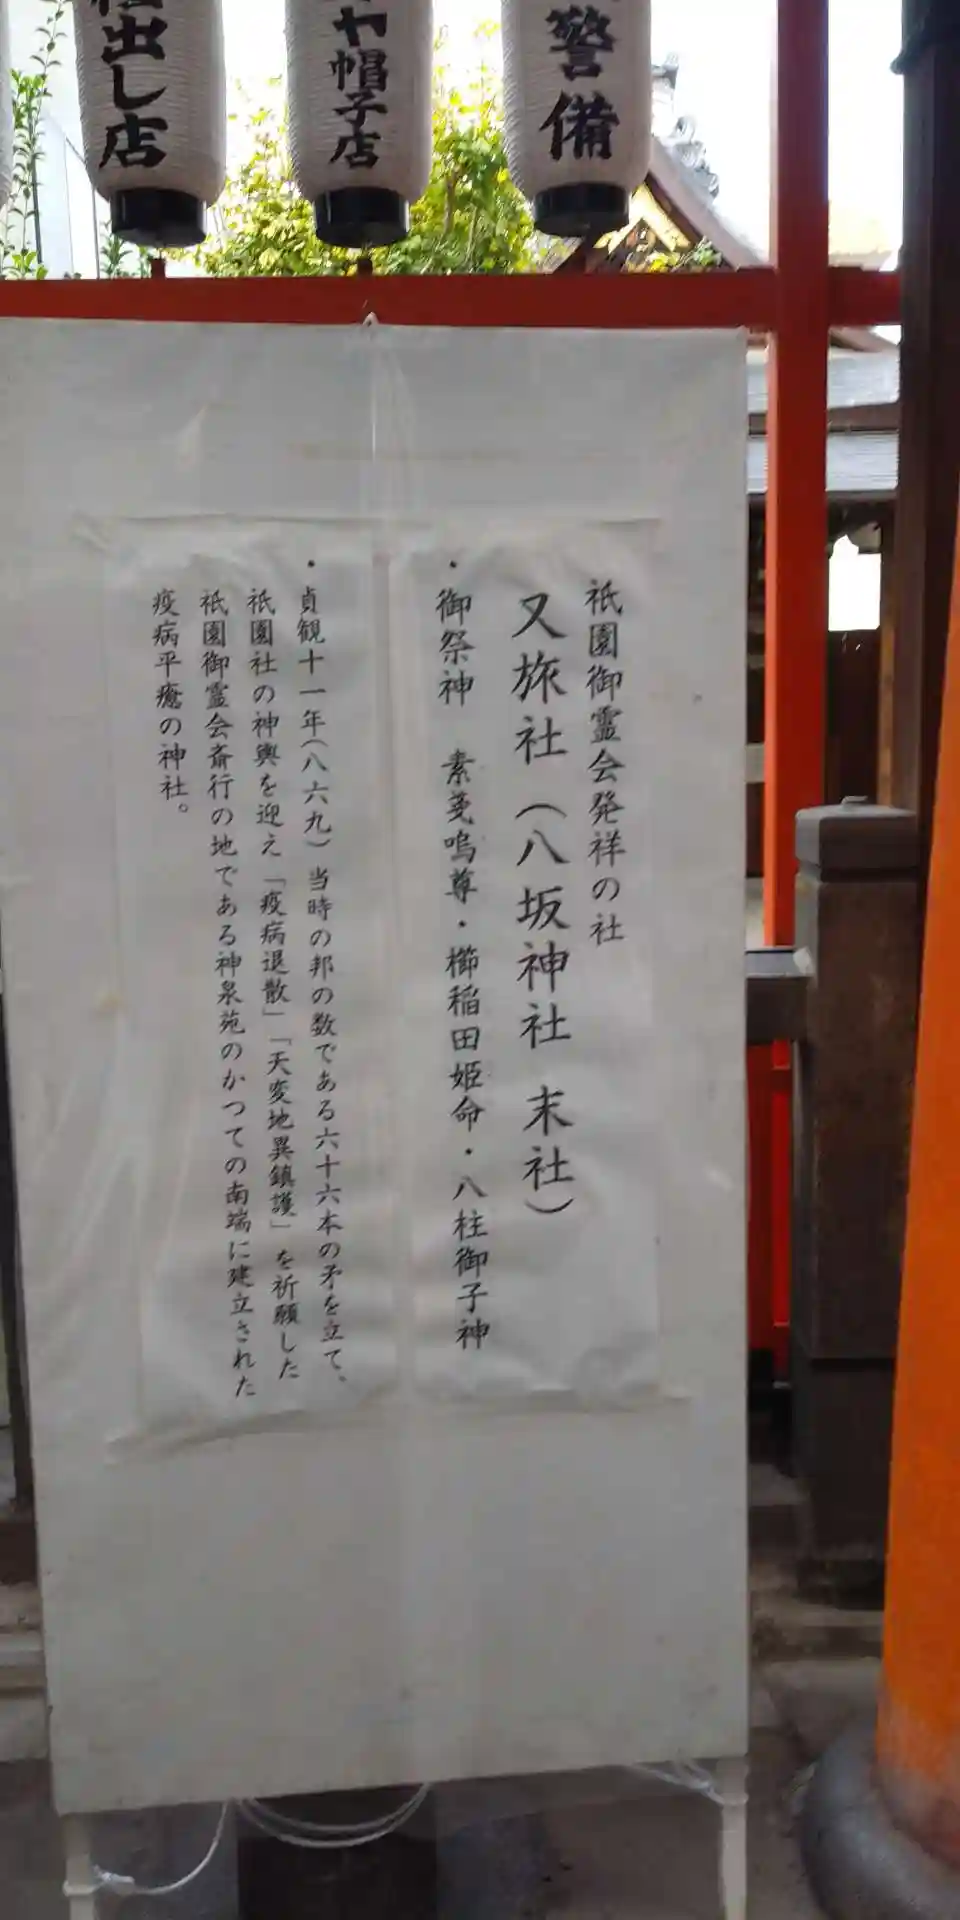 出し店
ヤ帽子店
警備
祇園御霊会発祥の社
又旅社（八坂神社 末社）
・御祭神 素戔嗚尊・櫛稲田姫命・八柱御子神
・貞観十一年（八六九）当時の邦の数である六十六本の矛を立て、
祇園社の神輿を迎え「疫病退散」「天変地異鎮護」を祈願した
祇園御霊会斎行の地である神泉苑のかつての南端に建立された
疫病平癒の神社。